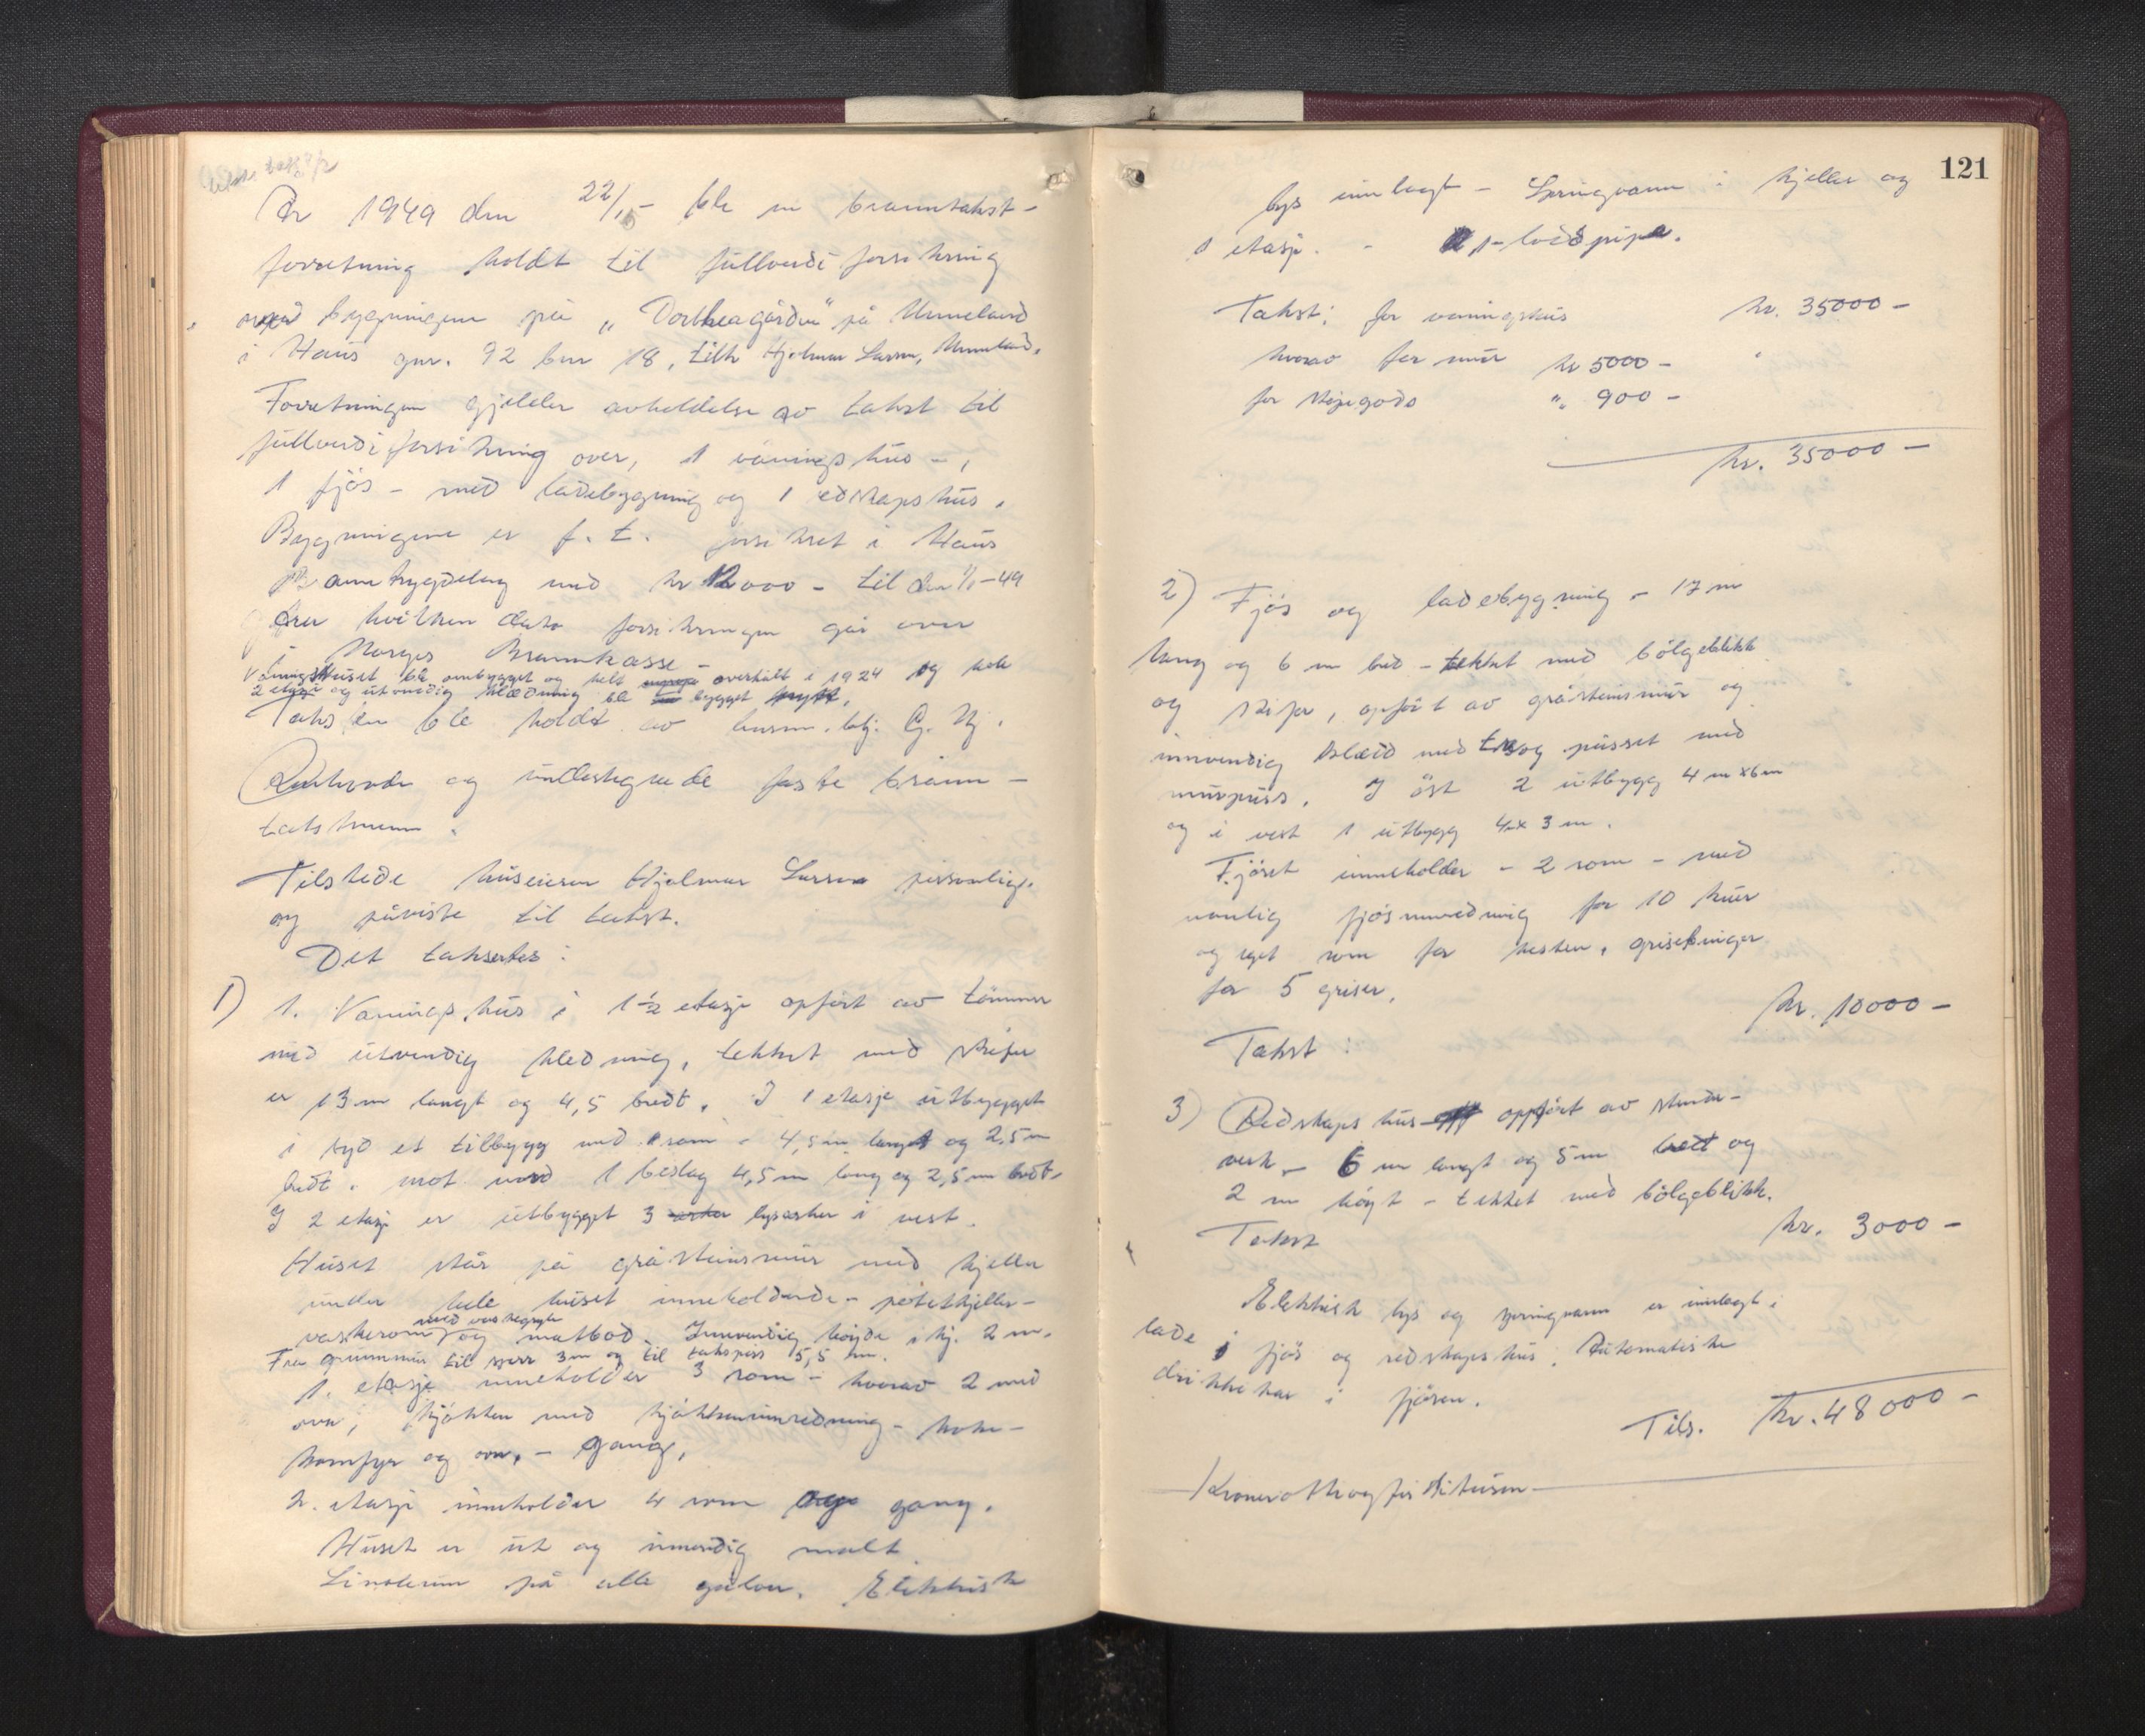 År 1949 den 22/ - ble en branntakst-
forretning holdt til fullverdiforsikring
over bygningene på „Dortheagården" på Unneland
i Haus gnr. 92 bnr 18, tilh Hjalmar Larsen, Unneland.
Forretningen gjelder avholdelse av takst til
fullverdiforsikring over, 1 våningshus -,
1 fjøs - med ladebygning og 1 redskapshus.
Bygningene er f. t. forsikret i Haus
Brannbygdelag med kr 12000 - til den 1/1-49
fra hvilken dato forsikringen går over
i Norges Brannkasse -
Våningshuset ble ombygget og helt overhalt i 1924 og hele
2 etasje og utvendig klædning ble bygget nytt.
Taksten ble holdt av lensm. btj. G. Hj.
og undertegnede faste brann-
takstmenn.
Tilstede huseieren Hjalmar Larsen personlig.
og påviste til takst.
Det takseres:
1) 1. Vånings hus i 1½ etasje opført av tømmer
med utvendig kledning, tekket med skifer
er 13 m langt og 4,5 bredt. I 1 etasje utbygget
i syd et tilbygg med 1 rom - 4,5 m langt og 2,5 m
bredt. mot nord 1 beslag 4,5 m lang og 2,5 m bredt.
I 2 etasje er utbygget 3 arker lysarker i vest.
Huset står på gråsteinsmur med kjeller
under hele huset inneholdende - potetkjeller -
med vaskegryte
vaskerom og matbod. Innvendig høyde i kj. 2 m.
Fra grunnmur til sperr 3 m og til takspiss 5,5 m.
1. etasje inneholder 3 rom - hvorav 2 med
ovn, kjøkken med kjøkkeninnredning - koke-
komfyr og ovn. - gang.
2. etasje inneholder 4 rom og gang.
Huset er ut og innvendig malt
Linoleum på alle gulver. Elektrisk
121
lys innlagt - Springvann i kjeller og
1 etasje. - 1 - lods pipe.
Takst: for våningshus kr. 35000 -
hvorav for mur kr 5000 -
for stegods " 900 -
kr. 35000 -
2) Fjøs og ladebygning - 17 m
lang og 6 m bred - tekket med bølgeblikk
og skifer, opført av gråsteinsmur og
innvendig klædd med tre og pusset med
murpuss. I øst 2 utbygg 4 m x 6 m
og i vest 1 utbygg 4 x 3 m.
Fjøset inneholder - 2 rom - med
vanlig fjøsinnredning for 10 kuer
og eget rom for hesten, grisebinger
for 5 griser.
Takst: kr. 10000 -
3) Redskaps hus opført av stender-
verk - 6 m langt og 5 m bredt og
2 m høyt - tekket med bølgeblikk.
Takst kr. 3000 -
Elektrisk lys og springvann er innlagt i
lade i fjøs og redskapshus. Automatiske
drikkekar i fjøsen.
Tils. kr. 48000 -
- Kronerottiogfirtitusen -